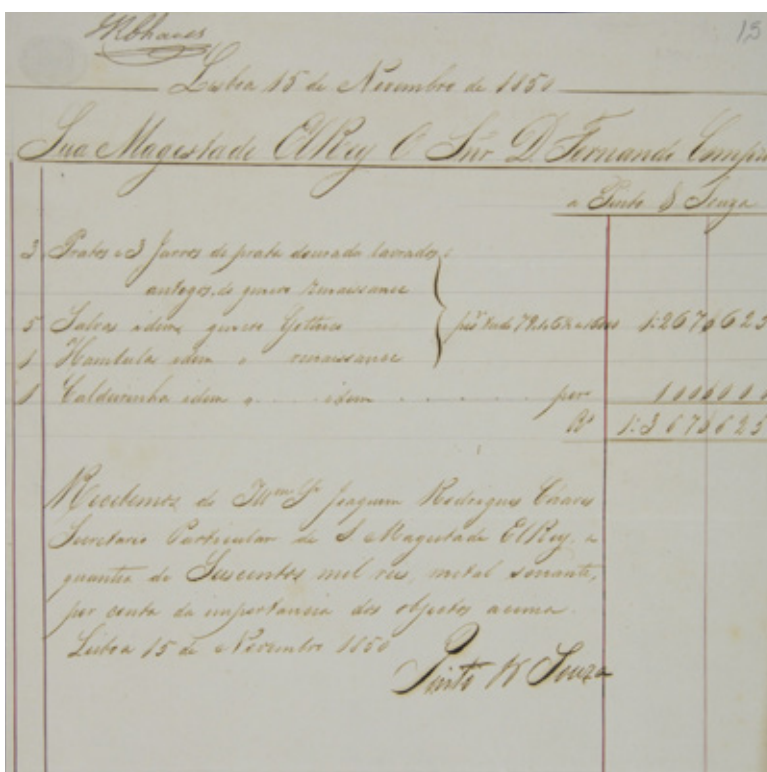 JRChaves
13
Lisboa 15 de Novembro de 1850
Sua Magestade ElRey O Snr D. Fernando Comprou
a Pinto & Souza
3 Pratos e 3 Jarros de prata dourada lavrados
antigos, de genero renaissance
5 Salvas idem genero Gothico 1:267$625
1 idem " renaissance
1 Caldeirinha idem " idem por 100$000
Rs 1:367$625
Recebemos do Illmo Sr Joaquim Rodrigues Chaves
Secretario Particular de S Magestade ElRey, a
quantia de Duscentos mil reis, metal sonante,
por conta da importancia dos objectos acima.
Lisboa 15 de Novembro 1850
Pinto & Souza